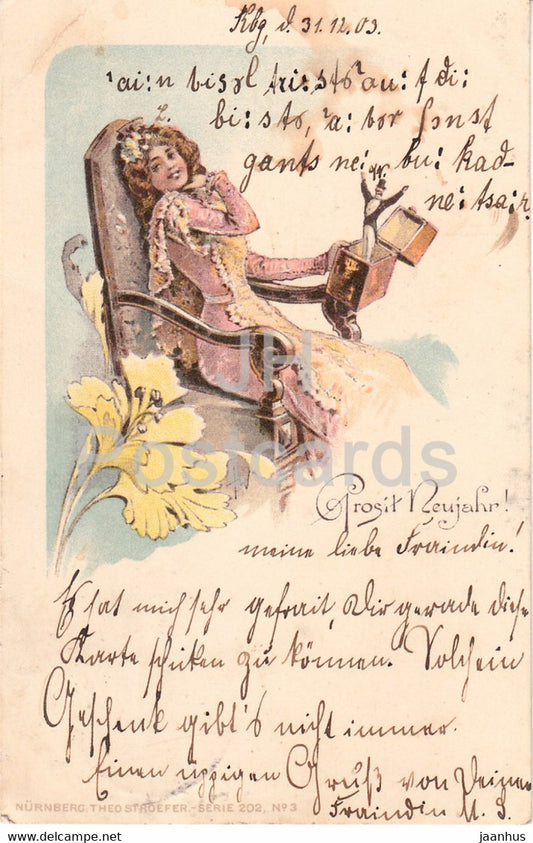 Kbg, d. 31.12.03.
'ai:n bisɔl tri:sts 'au:f di:
L. bi:sts, 'a: bor sonst
gants nei: bu: kad-
ne: tsa:r.
JH
Postcards
Prosit Neujahr!
meine liebe Fraindin!
Es hat mich sehr gefrait, Dir gerade diese
Karte schiken zu können. Solch ein
Geschenk gibt's nicht immer.
Einen üppigen Gruß von Deiner
Fraindin M. S.
NÜRNBERG, THEO STROEFER.-SERIE 202, № 3
www.hippostcard.com
jaanhus